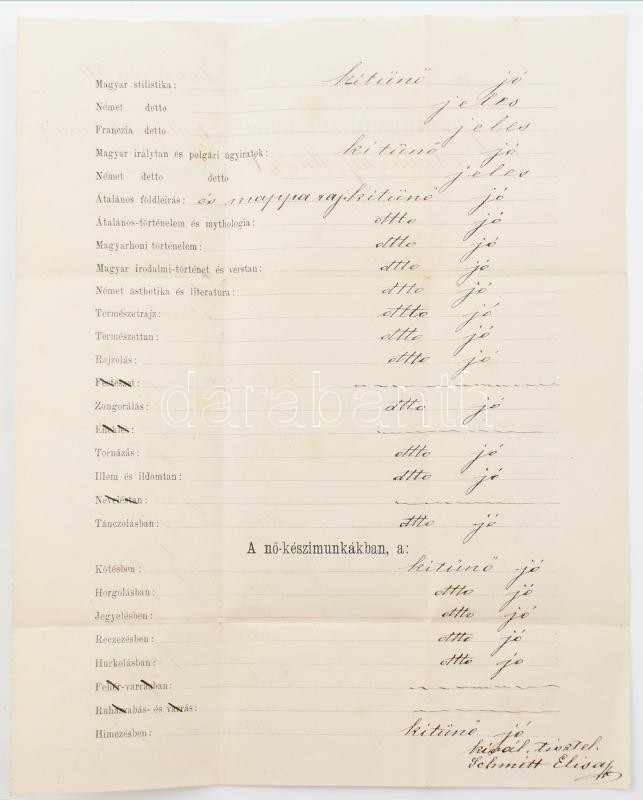 Magyar stilistika: kitünő jó
Német detto jeles
Franczia detto jeles
Magyar irálytan és polgári ügyiratok: kitünő jó
Német detto detto jeles
Átalános földleirás: és mappa rajz kitünő jó
Átalános-történelem és mythologia: dtto jó
Magyarhoni történelem: dtto jó
Magyar irodalmi-történet és verstan: dtto jó
Német ásthetika és literatura: dtto jó
Természetrajz: dtto jó
Természettan: dtto jó
Rajzolás: dtto jó
Festészet:
Zongorálás: dtto jó
Éneklés:
Tornázás: dtto jó
Illem és ildomtan: dtto jó
Neveléstan:
Tánczolásban: dtto jó
A nő-készimunkákban, a:
Kötésben: kitünő jó
Horgolásban: dtto jó
Jegyelésben: dtto jó
Reczezésben: dtto jó
Hurkolásban: dtto jó
Fehér-varrásban:
Ruhaszabás- és varrás:
Himezésben: kitünő jó
kivál. tisztel.
Schmitt Elisa
darabanth